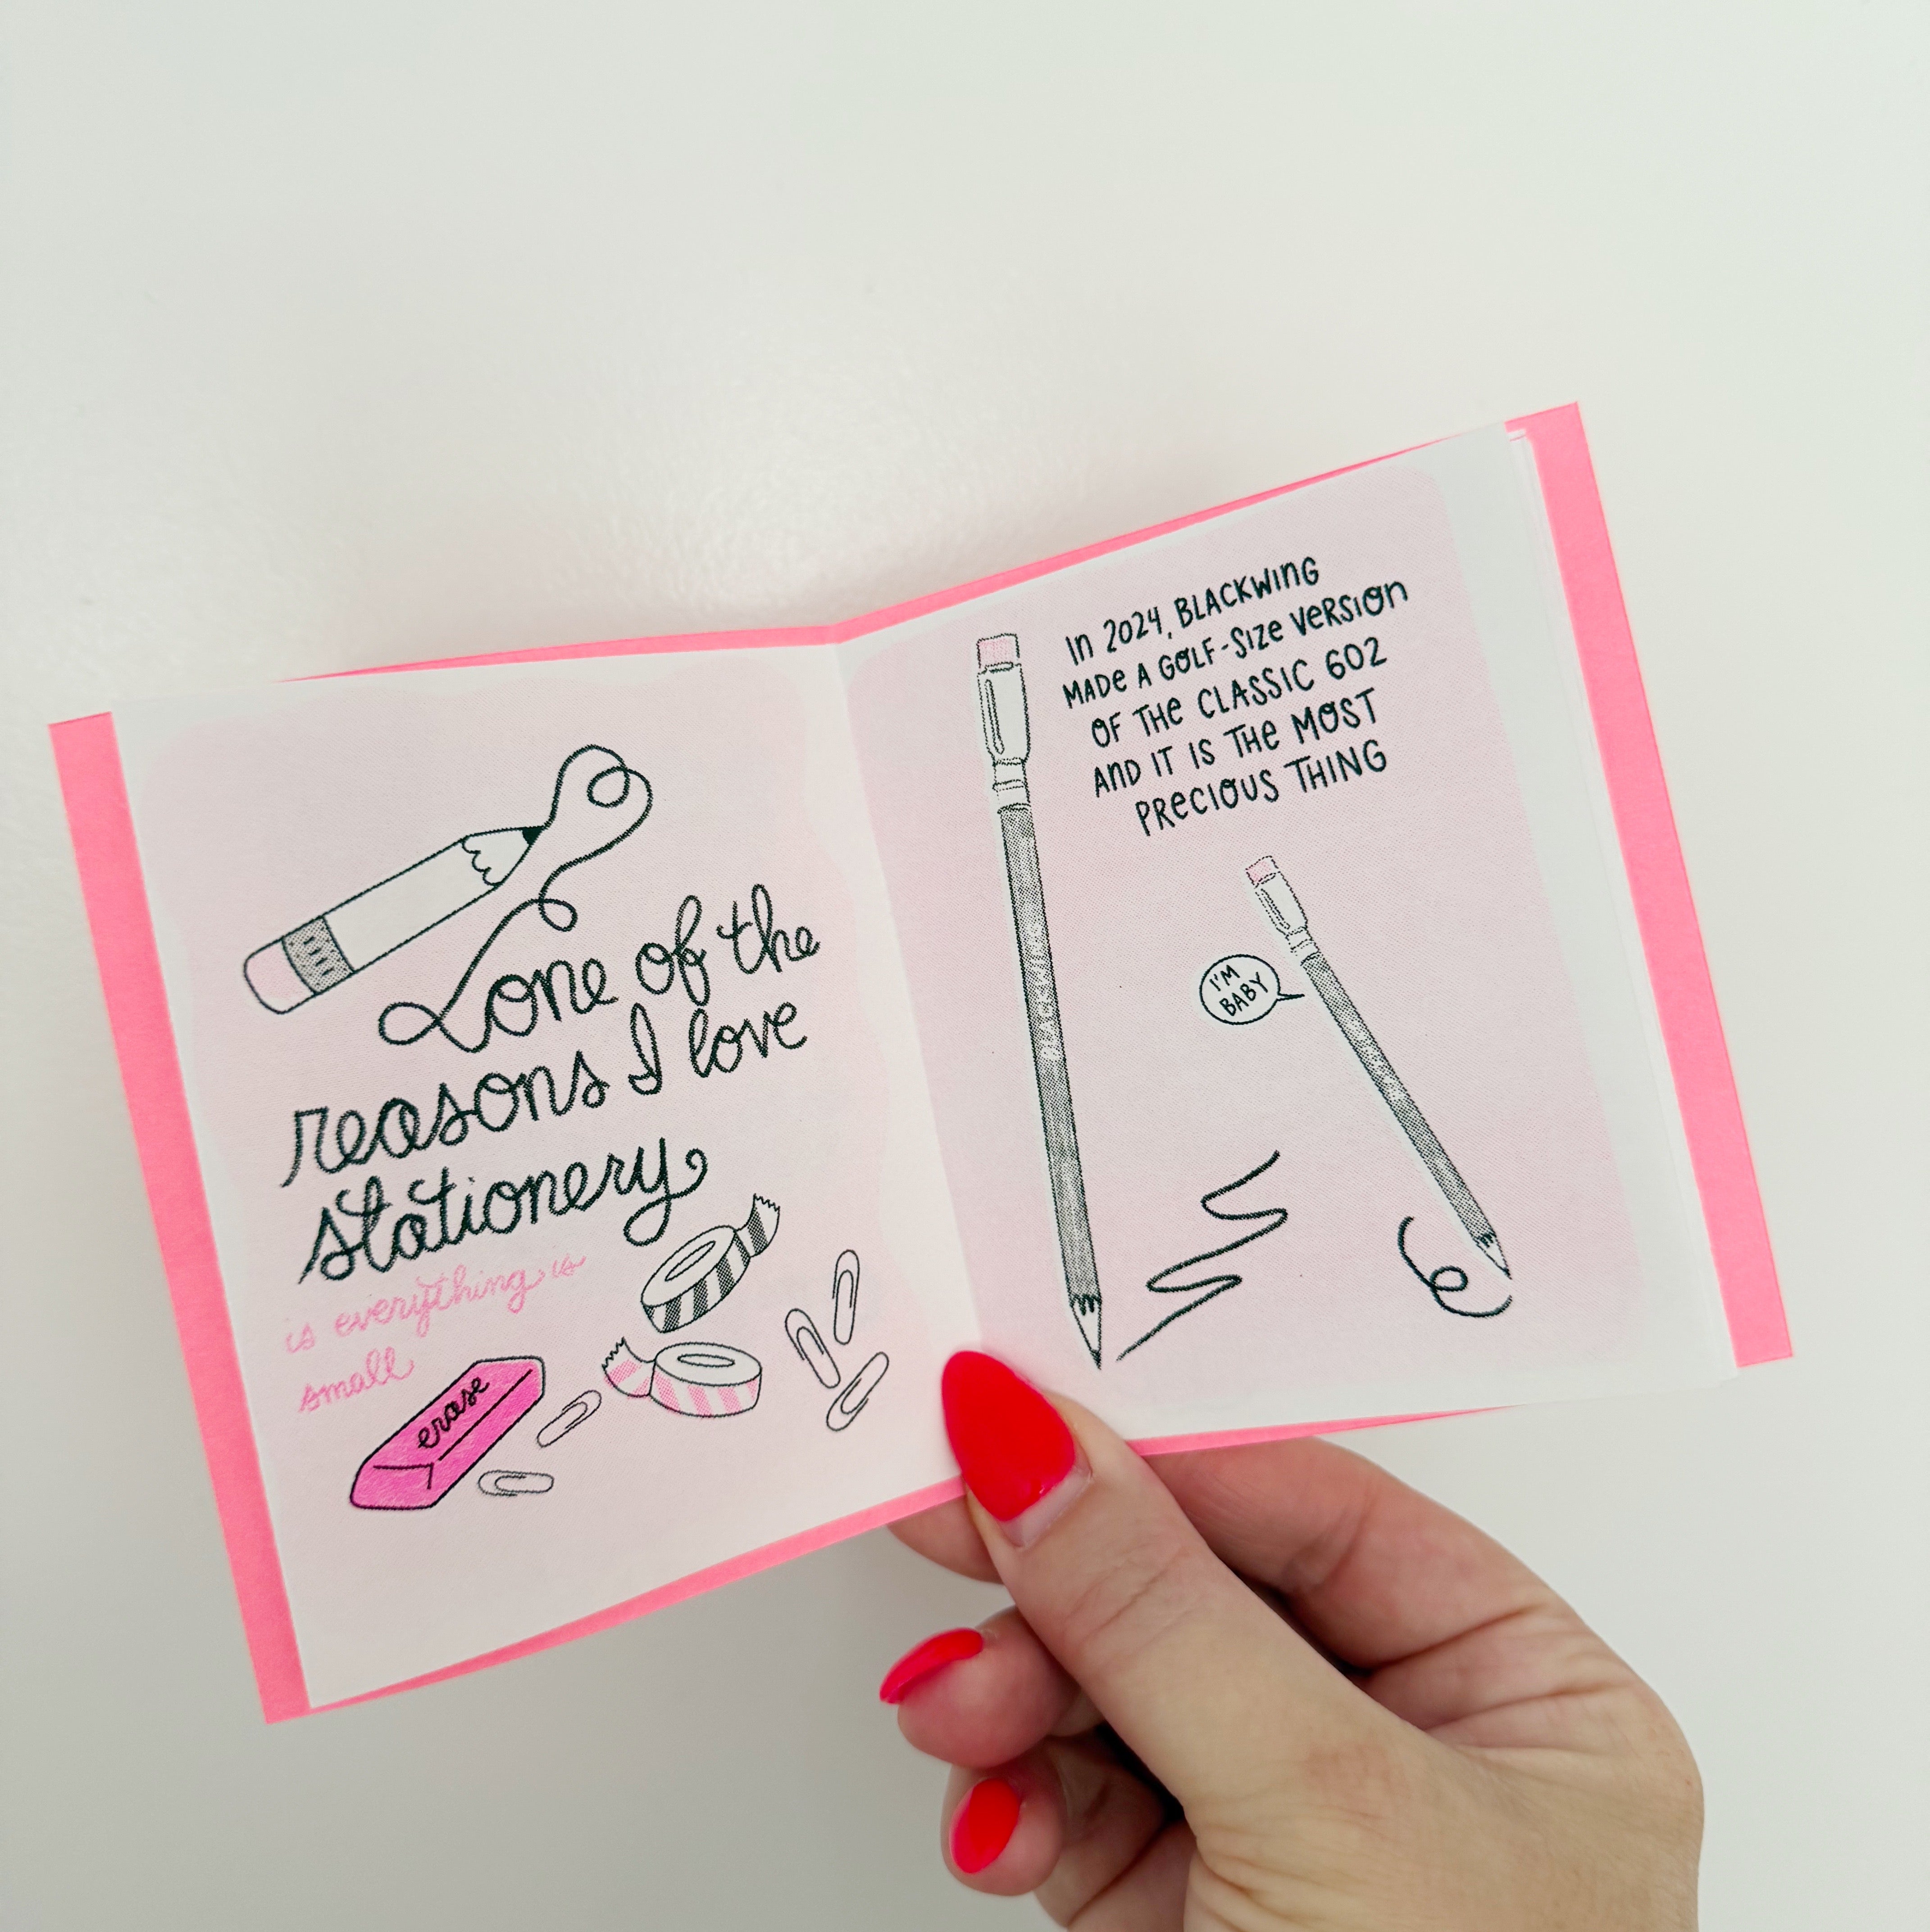 one of the
reasons I love
stationery
is everything is
small
erase
In 2024, BLACKWING
MADE A GOLF-SIZE VERSION
OF THE CLASSIC 602
AND IT IS THE MOST
PRECIOUS THING
I'M
BABY
BLACKWING